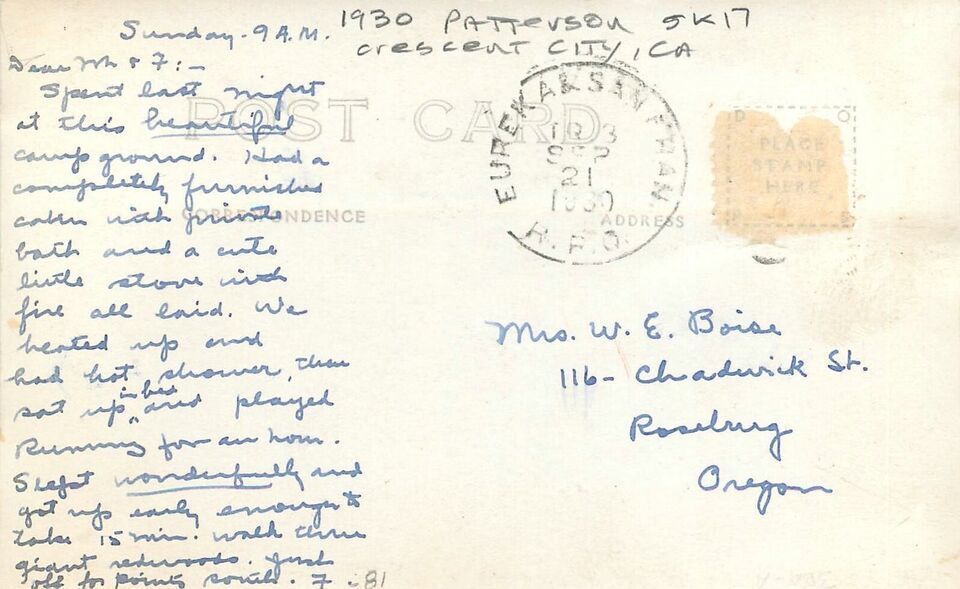 1930 PATTERSON JK17
Crescent City, CA
Sunday - 9 A.M.
Dear Mh & F: -
Spent last night
at this beautiful
camp ground. Had a
completely furnished
cabin with private
bath and a cute
little stove with
fire all laid. We
heated up and
had hot shower, then
sat up in bed and played
Rummy for an hour.
Slept wonderfully and
got up early enough to
take 15 min. walk thru
giant redwoods. Just
off for points south. F
81
POST CARD
CORRESPONDENCE
ADDRESS
EUREKA & SAN FRAN.
TR 3
SEP
21
1930
R.P.O.
PLACE
STAMP
HERE
Mrs. W. E. Boise
116 - Chadwick St.
Roseburg
Oregon